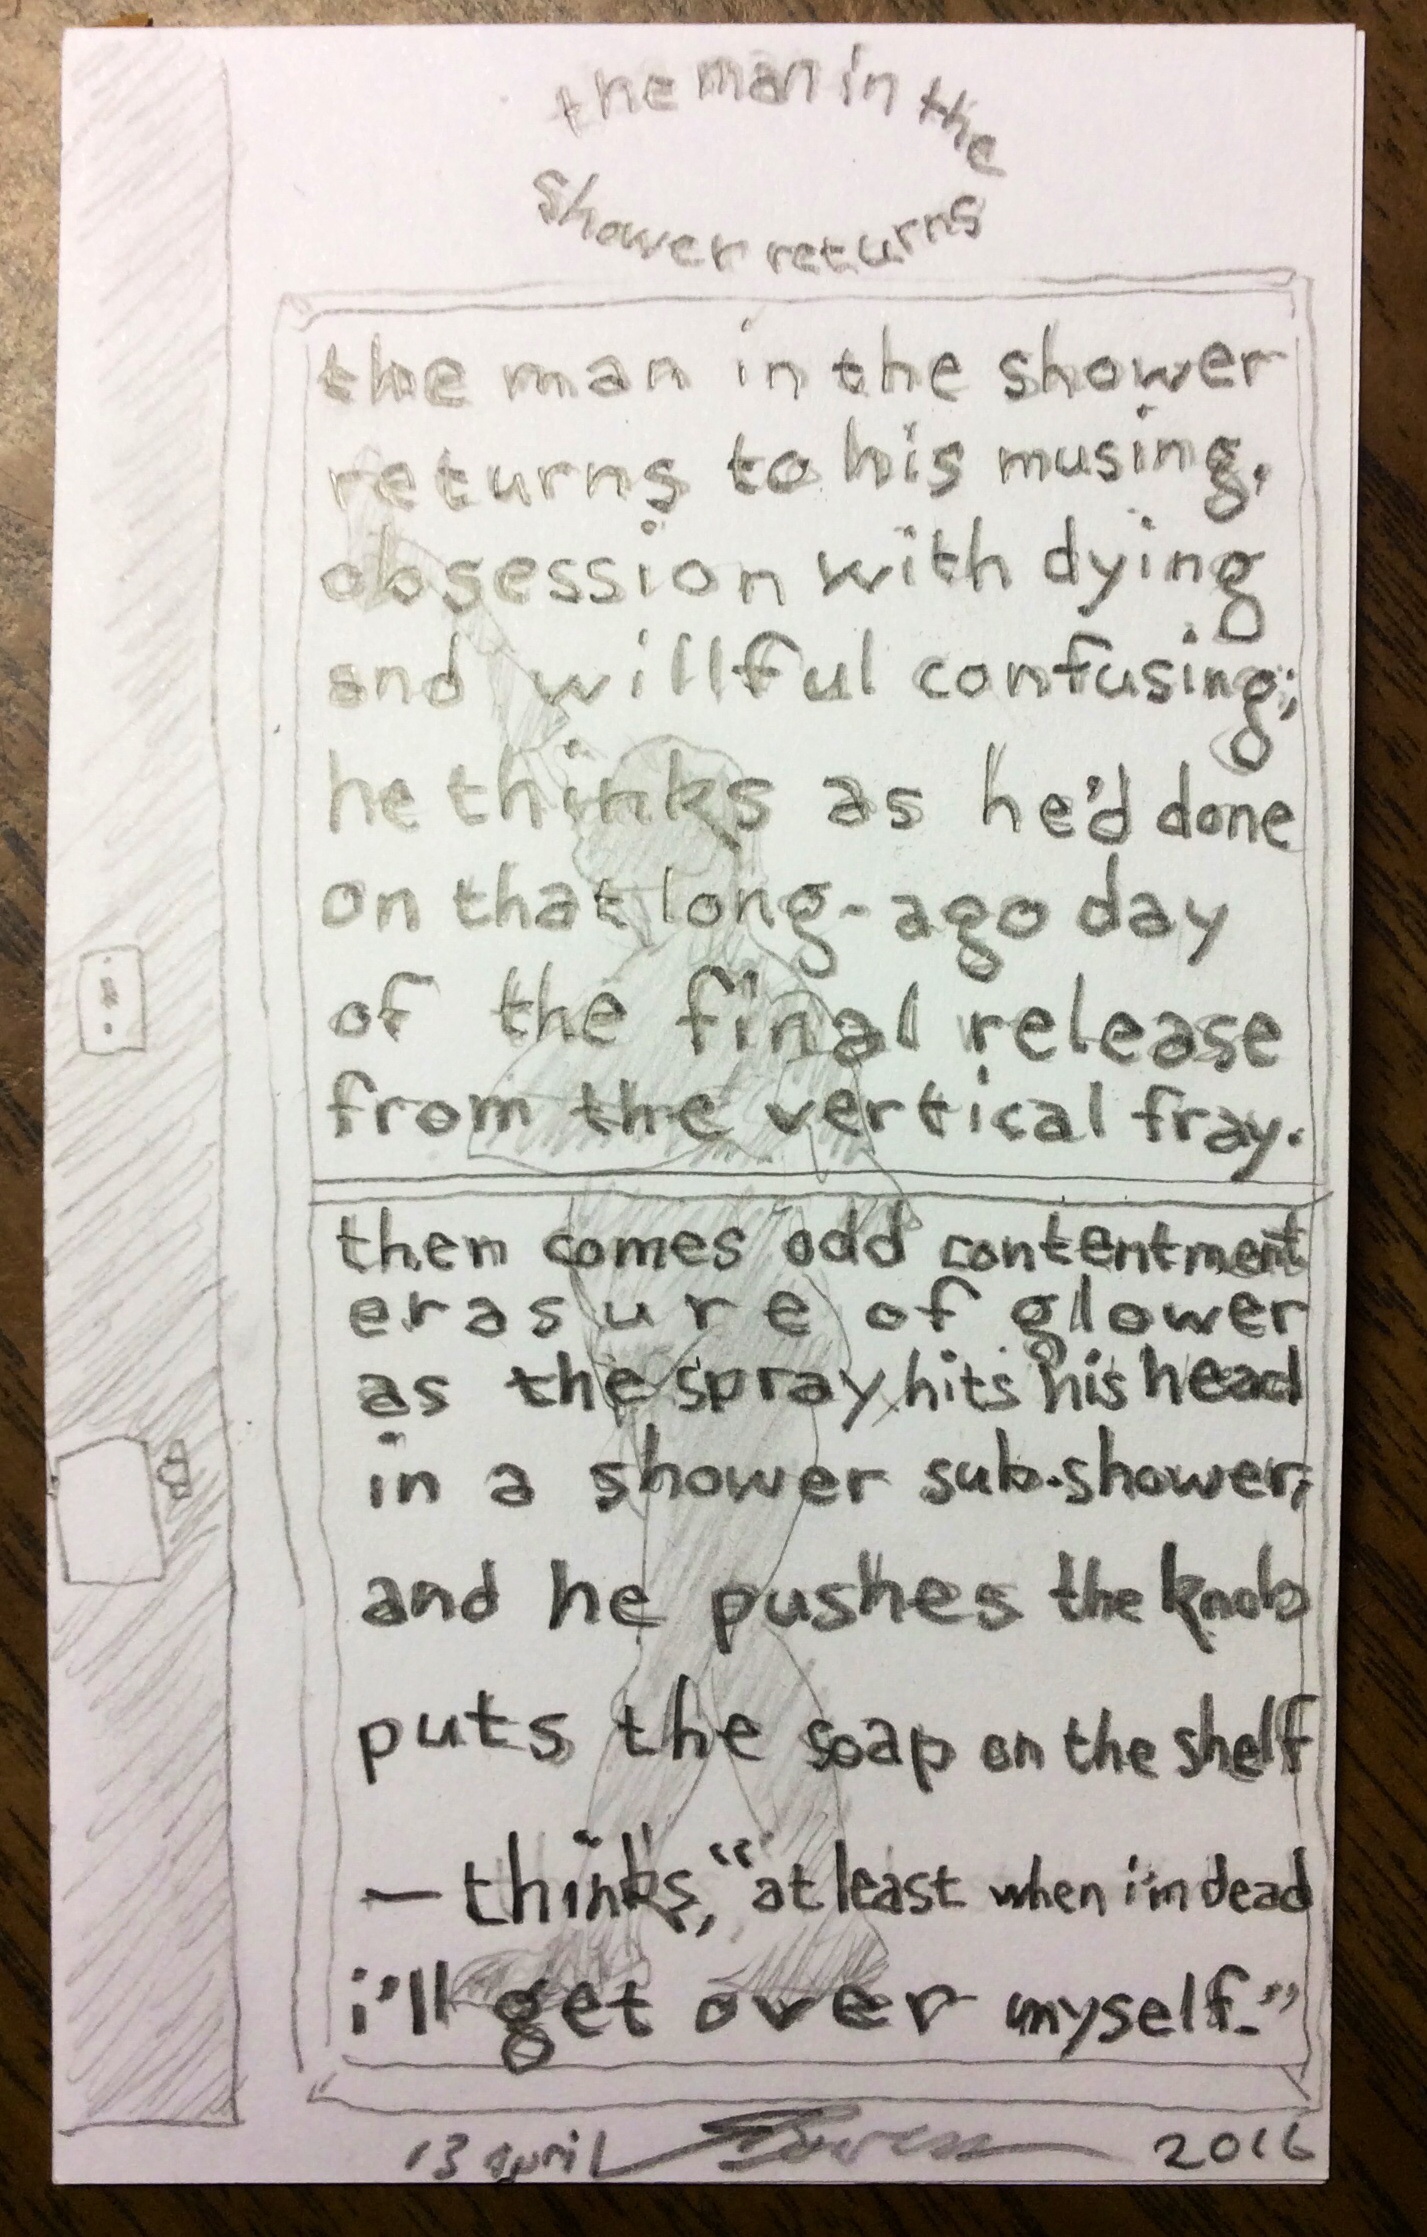 the man in the
shower returns
the man in the shower
returns to his musing,
obsession with dying
and willful confusing;
he thinks as he'd done
on that long-ago day
of the final release
from the vertical fray.
then comes odd contentment
erasure of glower
as the spray hits his head
in a shower sub-shower;
and he pushes the knob
puts the soap on the shelf
— thinks, "at least when i'm dead
i'll get over myself."
13 april
2016